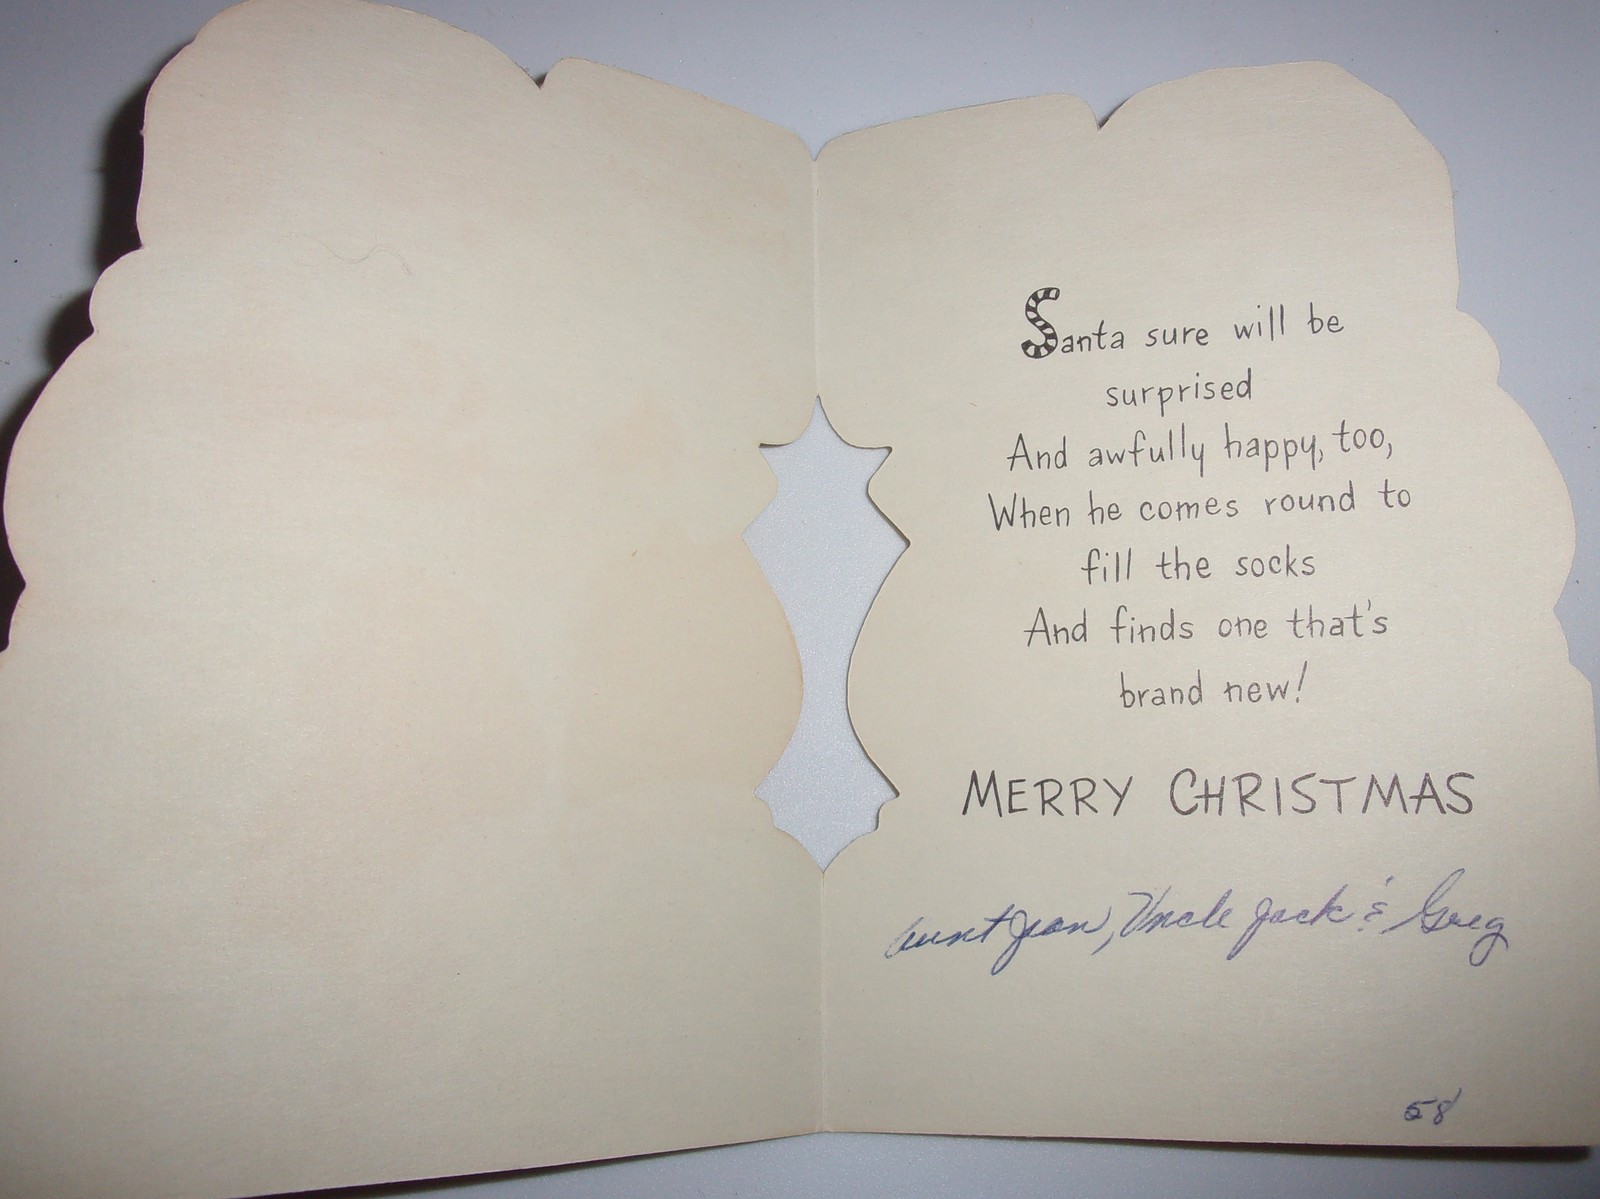 Santa sure will be
surprised
And awfully happy, too,
When he comes round to
fill the socks
And finds one that's
brand new!
MERRY CHRISTMAS
Aunt Jean, Uncle Jack & Greg
58